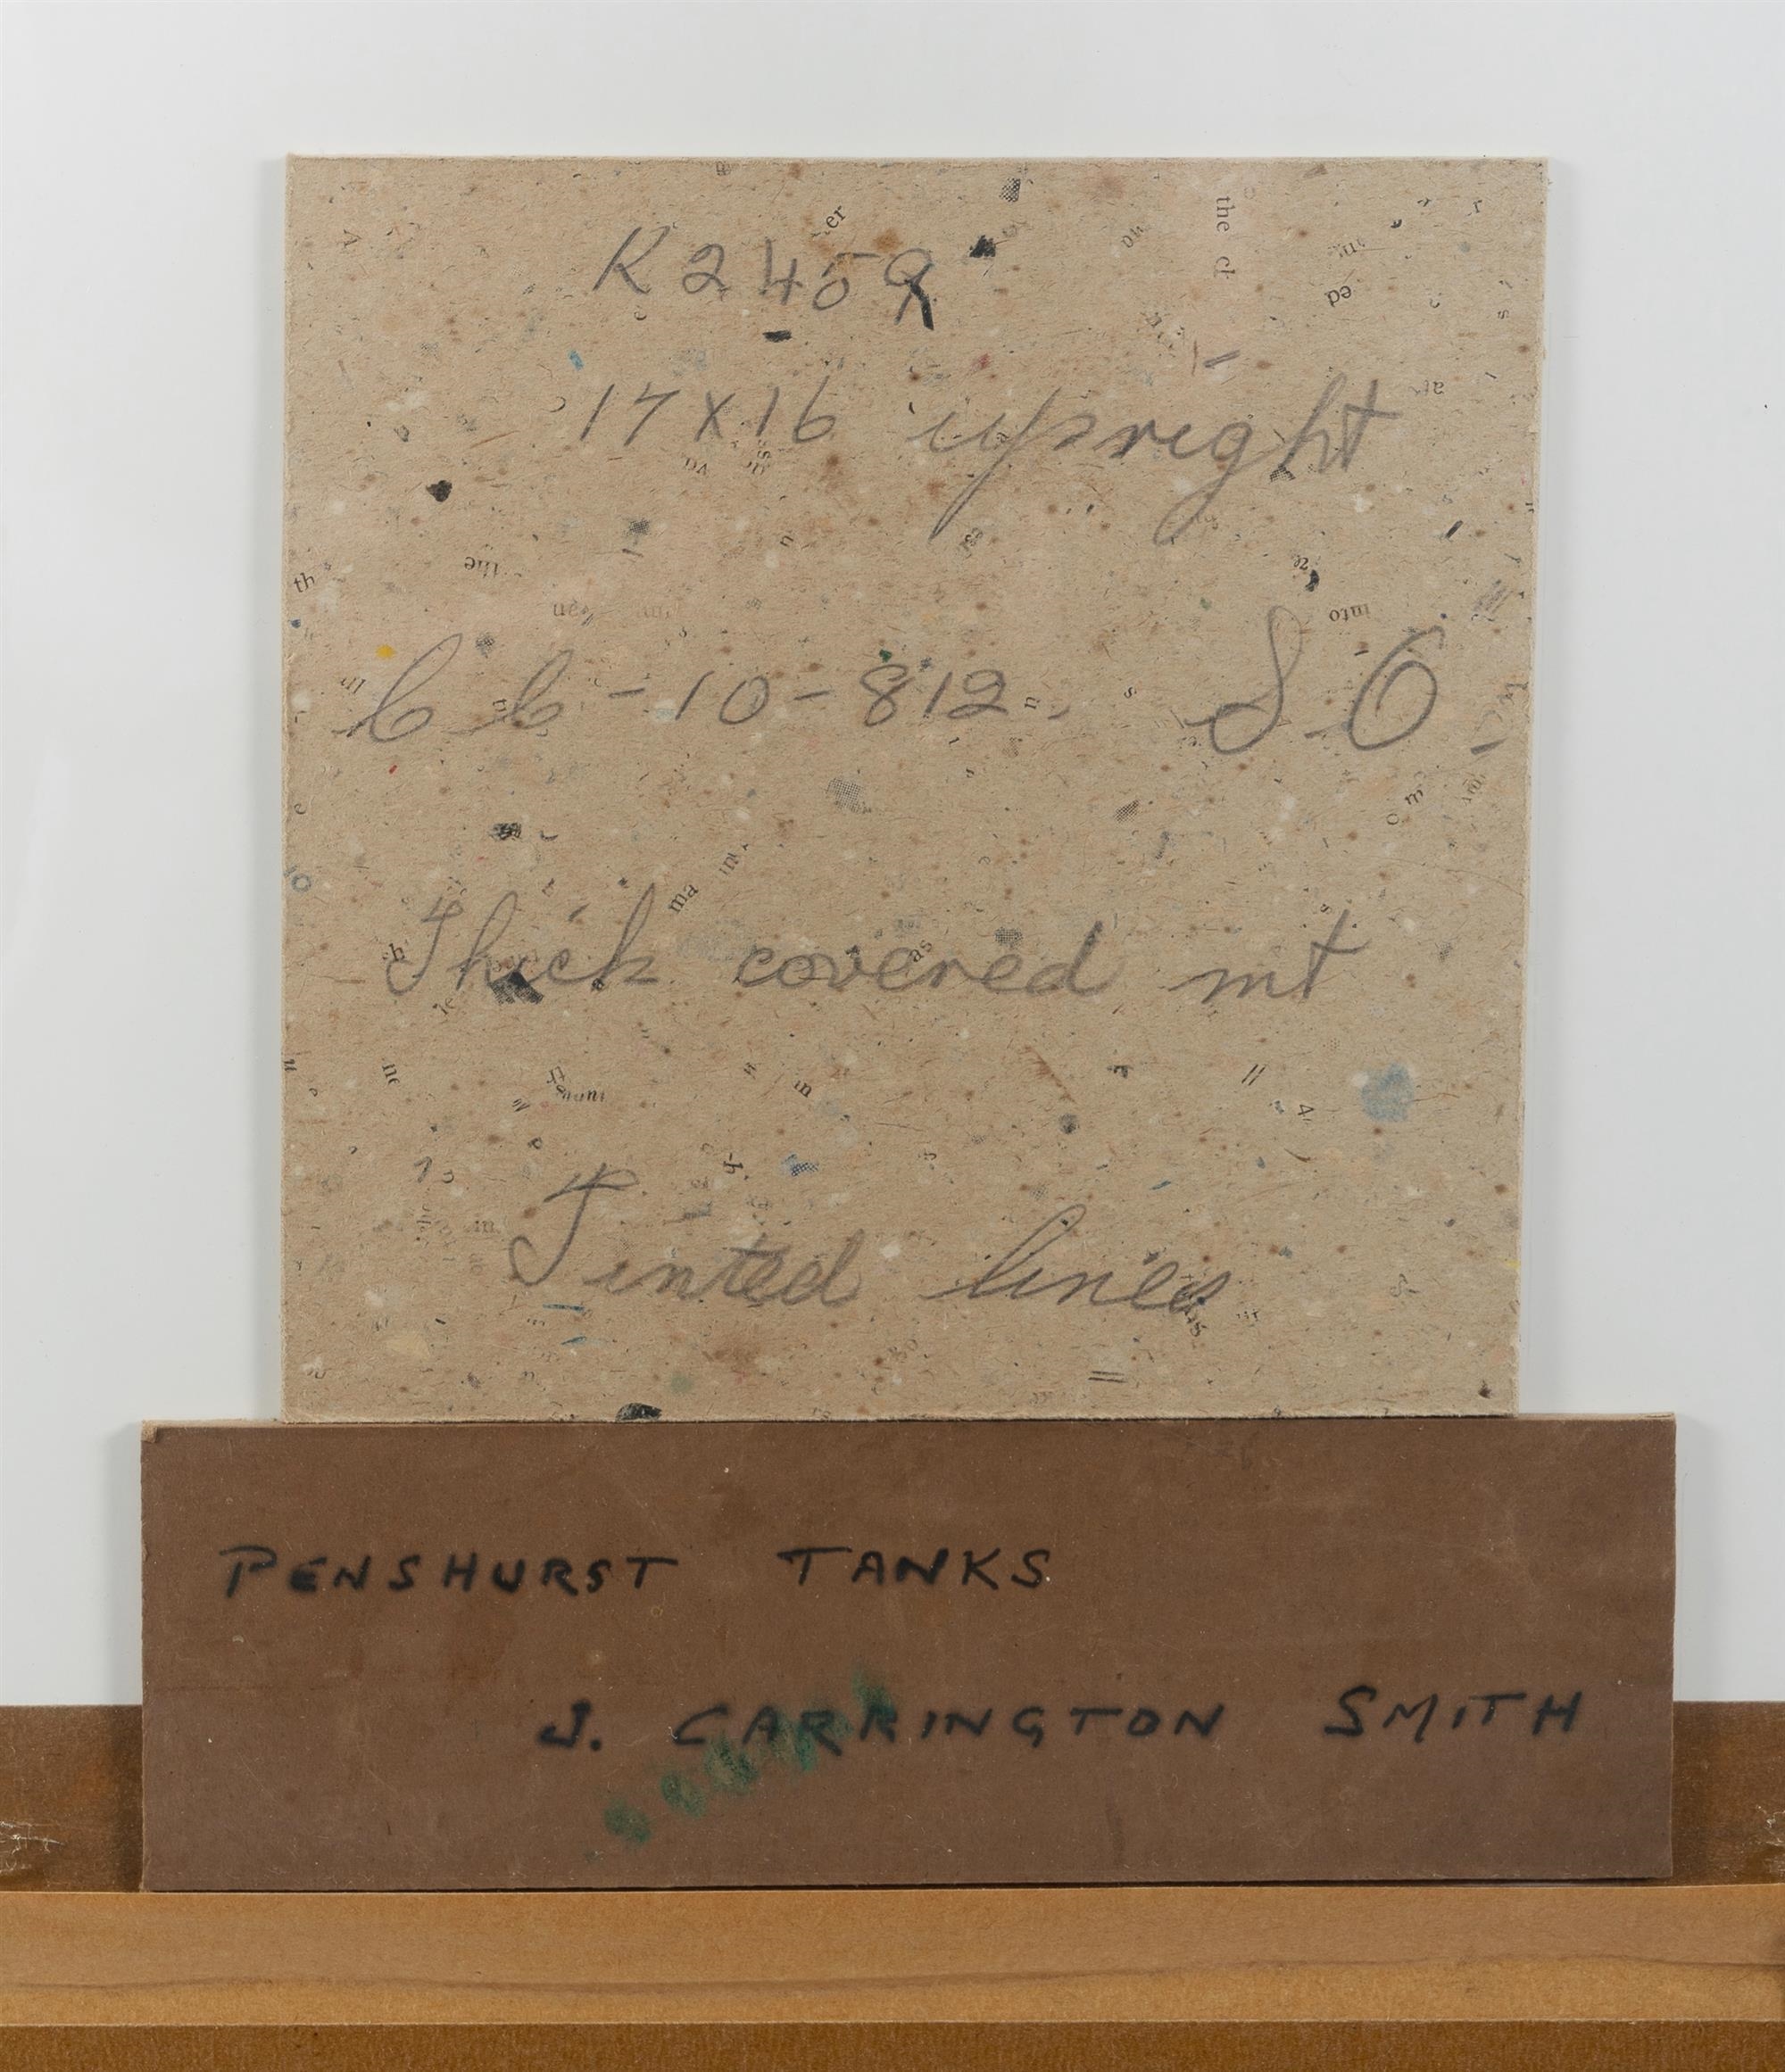 K2459
17 x 16 upright
C C - 10 - 812. S O.
Thick covered mt
Tinted lines
PENSHURST TANKS
J. CARRINGTON SMITH